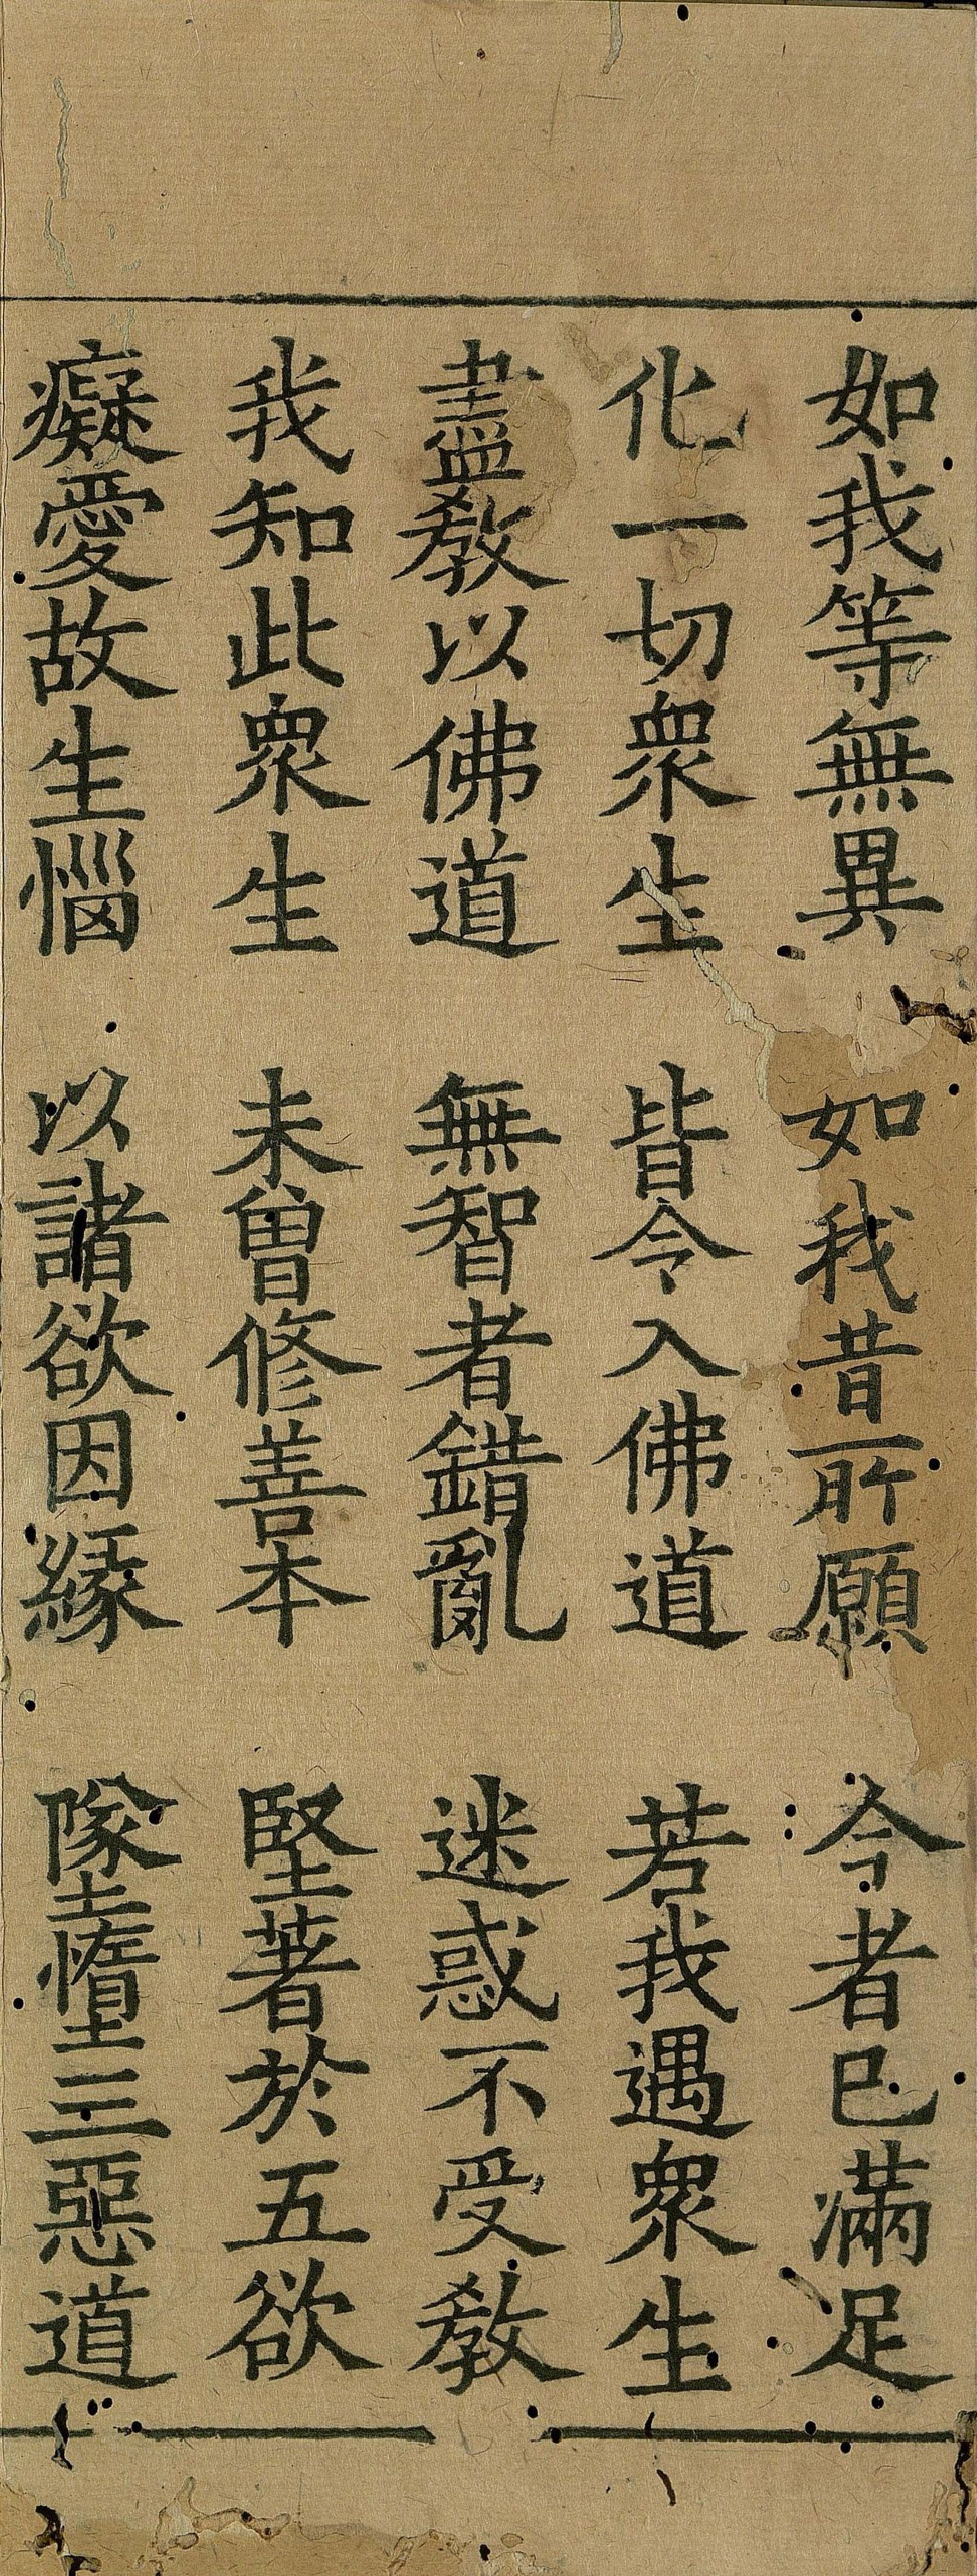 如我等無異　如我昔所願　今者已滿足
化一切衆生　皆令入佛道　若我遇衆生
盡教以佛道　無智者錯亂　迷惑不受教
我知此衆生　未曾修善本　堅著於五欲
癡愛故生惱　以諸欲因緣　墜墮三惡道